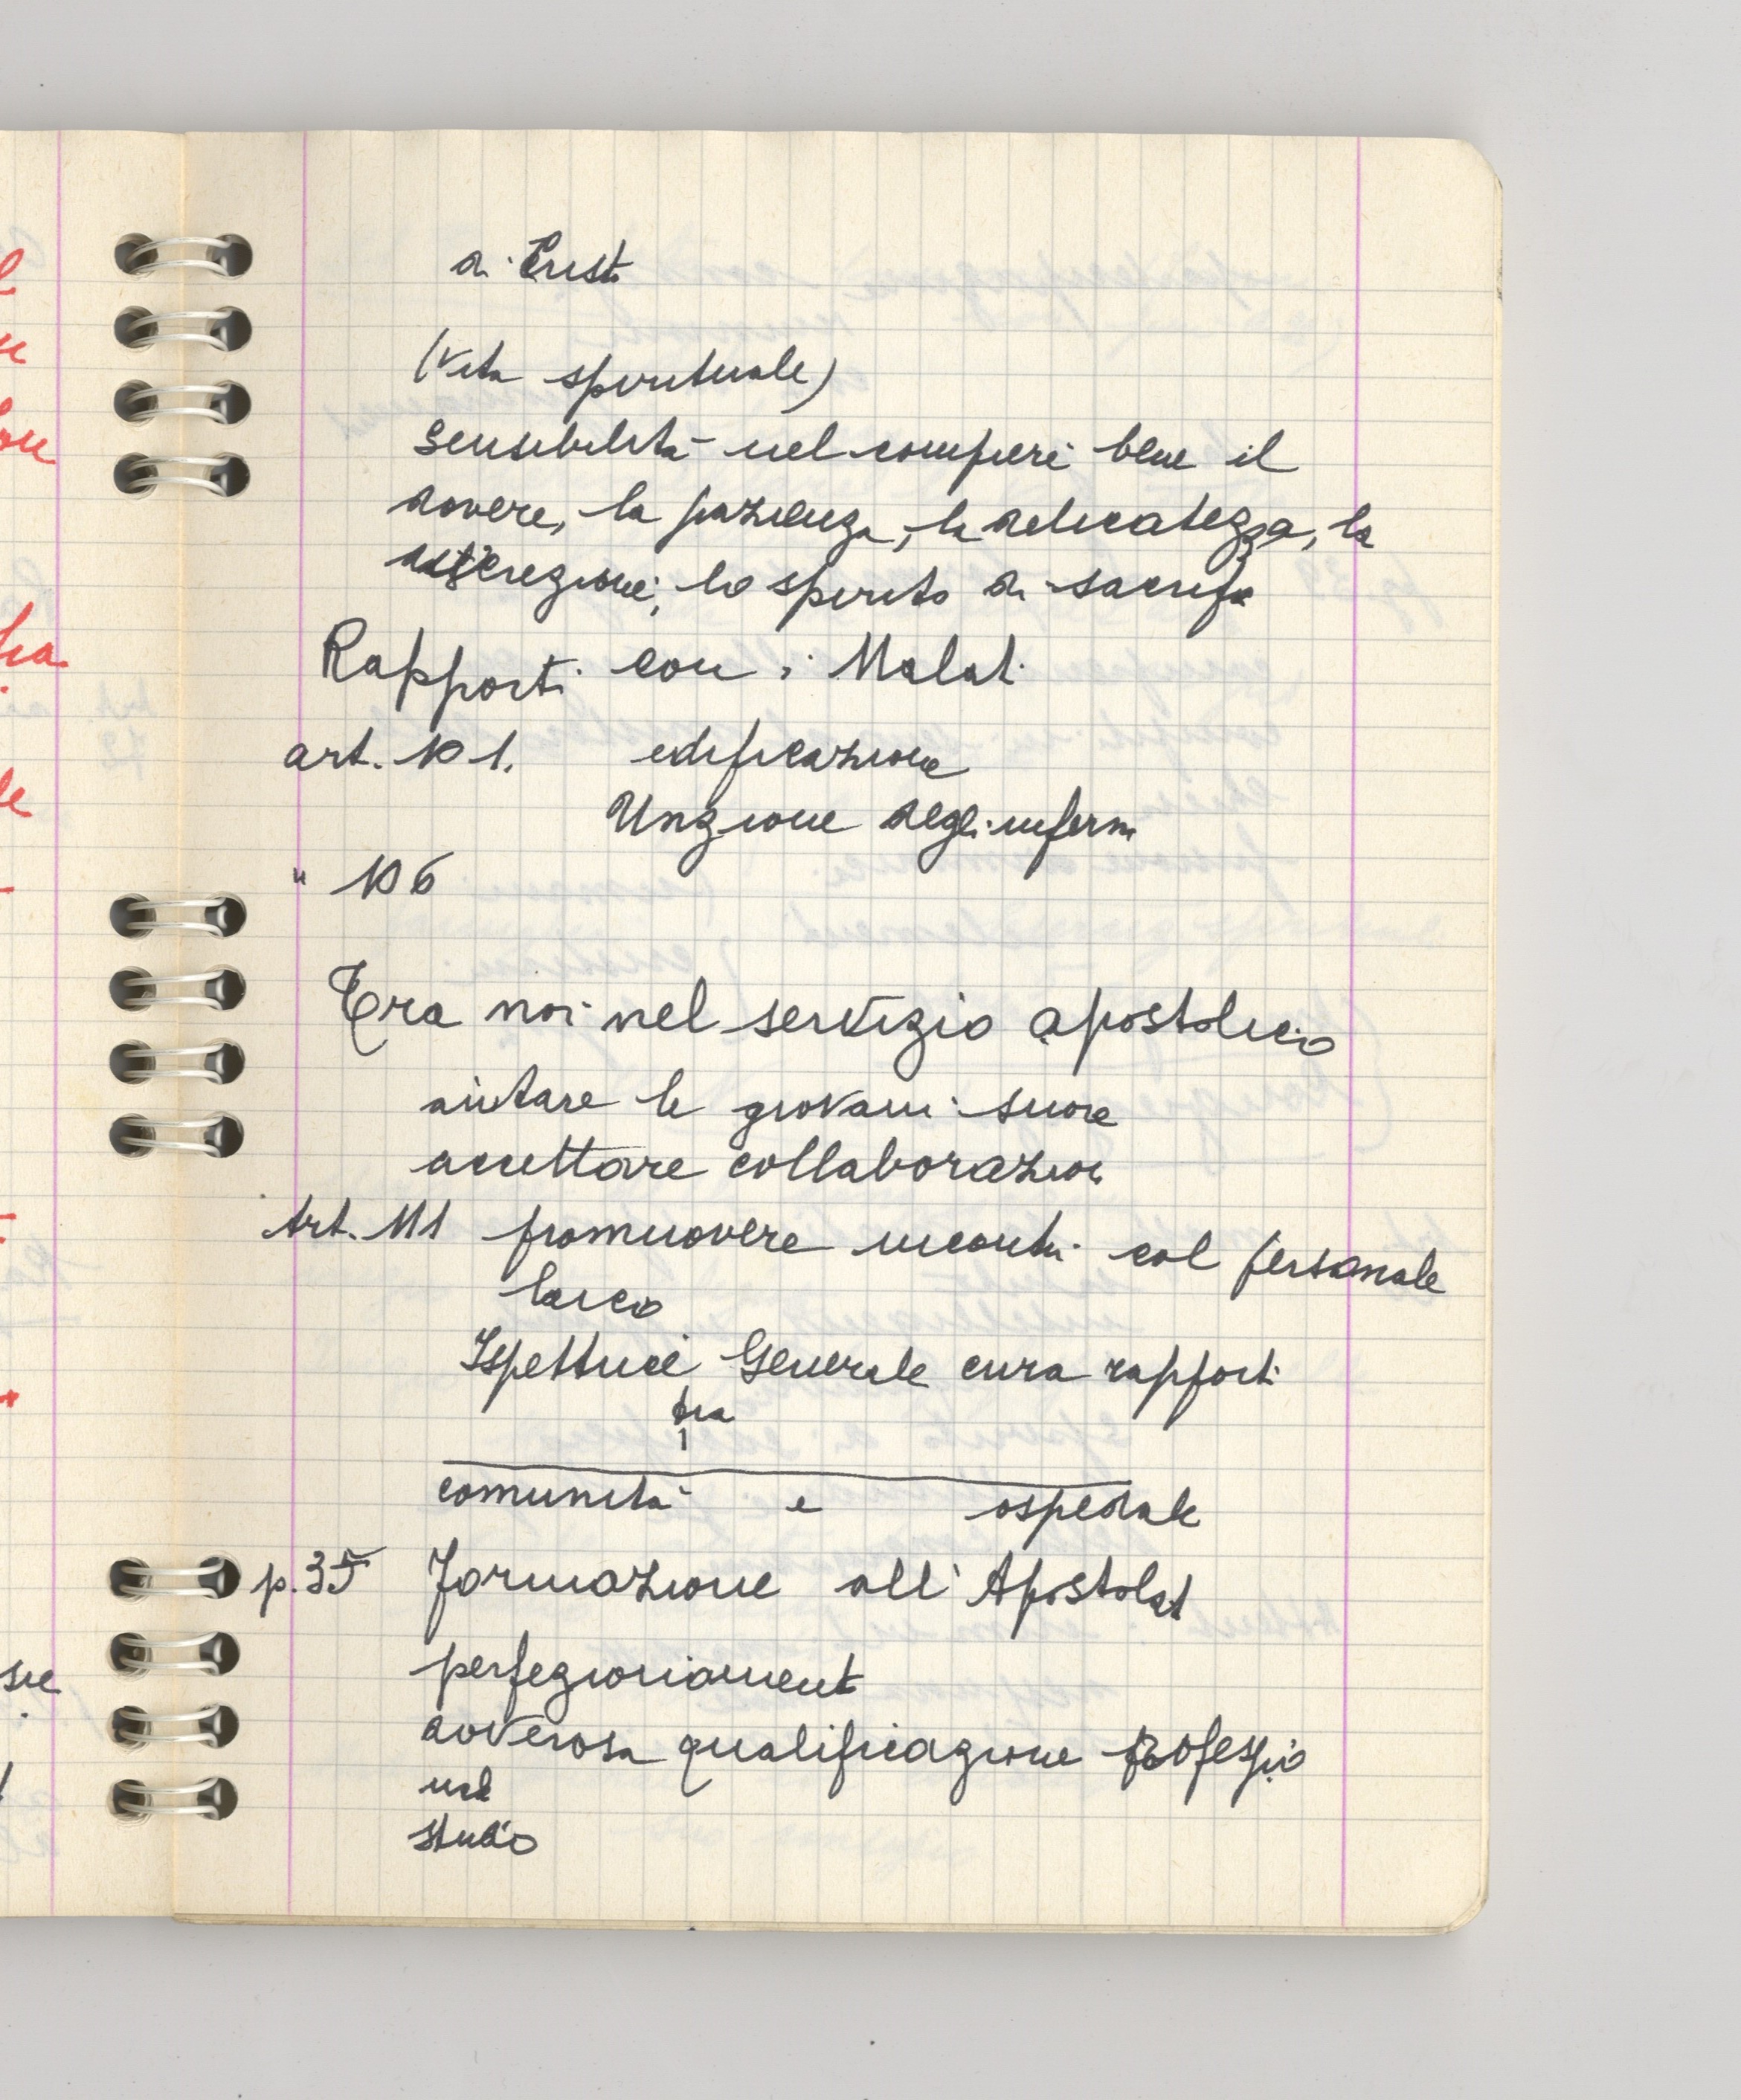 di Crist
(vita spirituale)
sensibilità nel compiere bene il
dovere, la pazienza, la delicatezza, la
discrezione, lo spirito di sacrif
Rapporti con i Malat
art. 101. edificazione
Unzione degli inferm
" 106
Tra noi nel servizio apostolico
aiutare le giovani suore
accettare collaborazion
Art. 111 promuovere incontri col personale
laico
Ispettrice Generale cura rapporti
tra
comunità e ospedale
p. 35 Formazione all'Apostolat
perfezionament
doverosa qualificazione professio
nal
studio